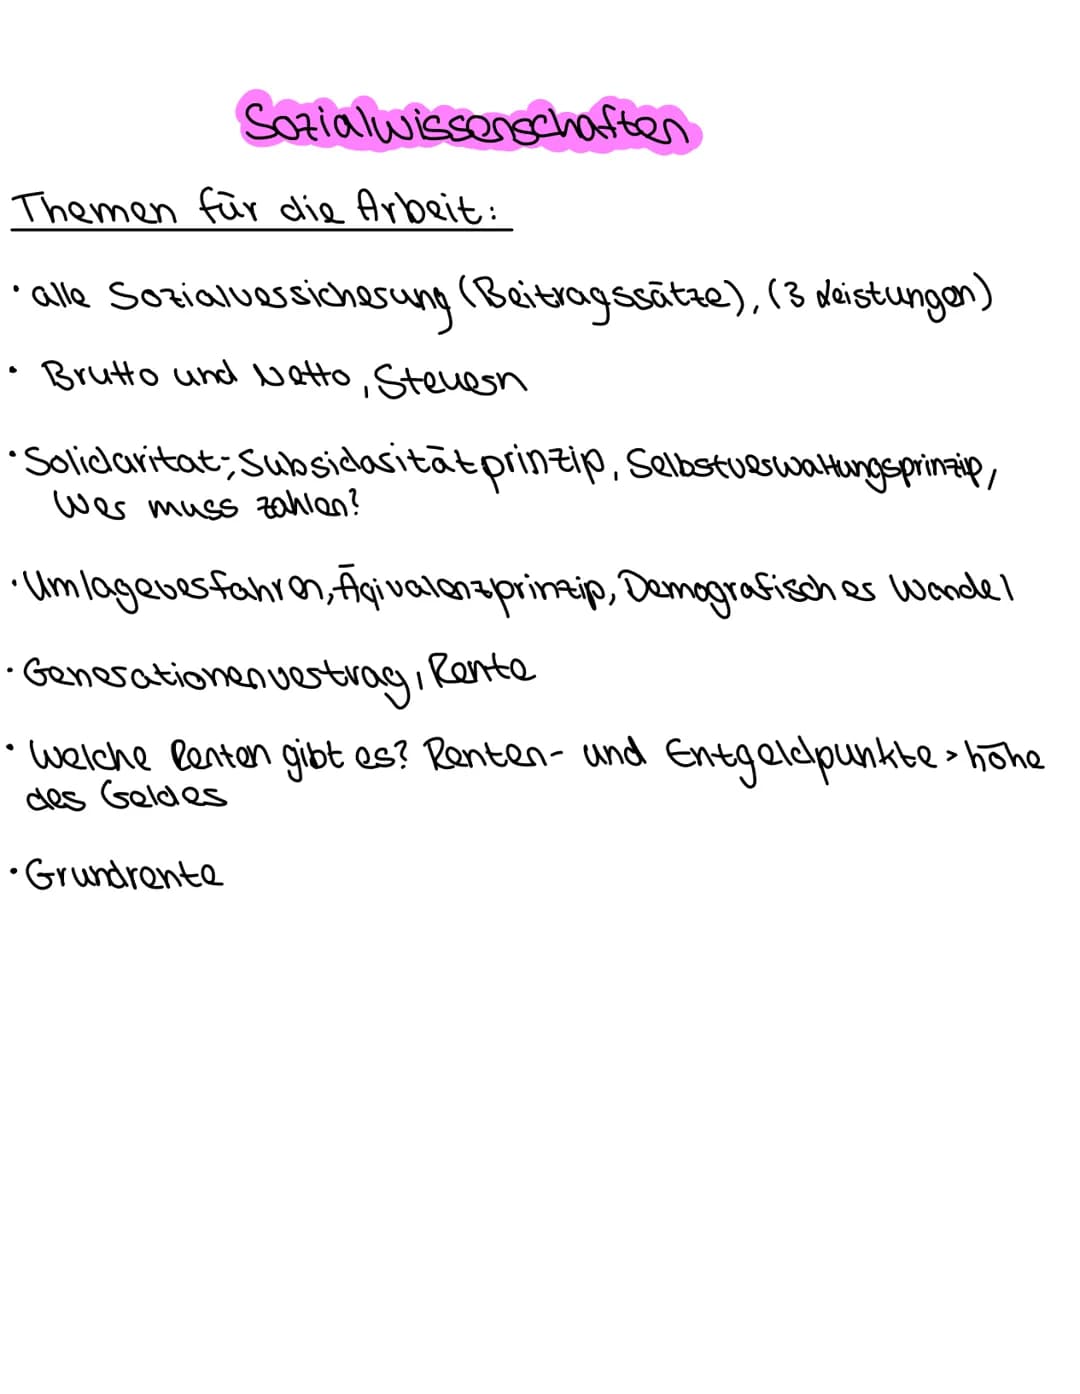 Sozialwissenschaften
Themen für die Arbeit:
• alle Sozialversicherung (Beitragssätze), (3 Leistungen)
• Brutto und Netto, Steuern
• Solidaritat-, Subsidaritätprinzip, Selbstverwaltungsprinzip,
Wer muss zahlen?
• Umlageverfahren, Äqivalenzprinzip, Demografischer Wandel
• Generationenvertrag, Rente
• Welche Renten gibt es? Renten- und Entgeldpunkte > höhe
des Geldes
• Grundrente